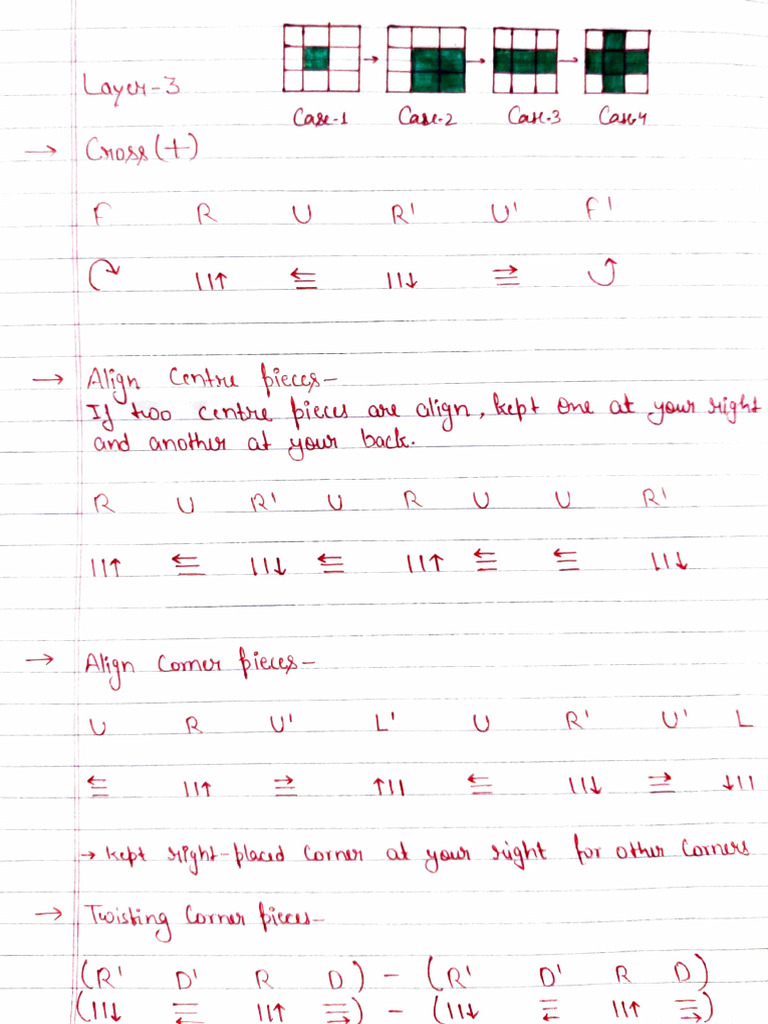 Layer-3
Case-1 Case-2 Case-3 Case-4
→ Cross (+)
F R U R' U' F'
||↑ ← ||↓ →
→ Align Centre pieces-
If two centre pieces are align, kept one at your right
and another at your back.
R U R' U R U U R'
||↑ ← ||↓ ← ||↑ ← ← ||↓
→ Align Corner pieces-
U R U' L' U R' U' L
← ||↑ → ↑|| ← ||↓ → ↓||
→ kept right-placed corner at your right for other corners
→ Twisting Corner pieces-
(R' D' R D) - (R' D' R D)
(||↓ ← ||↑ →) - (||↓ ← ||↑ →)